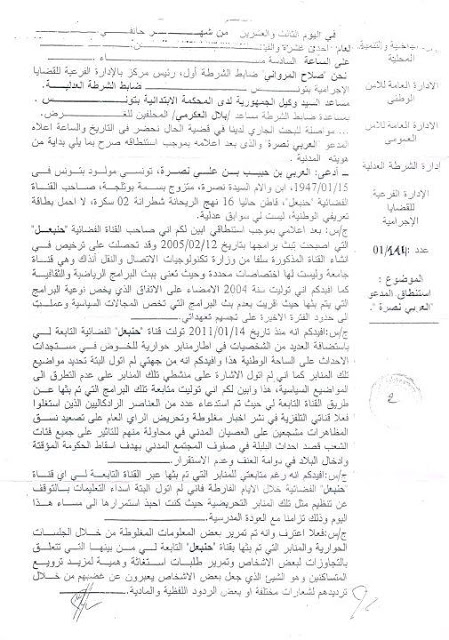 في اليوم الثالث والعشرين من شهـــر جانفـــي
العام احدى عشرة والفيـــن
على الساعة السادسة مساء
نحن "صلاح المرواني" ضابط الشرطة أول، رئيس مركز بالإدارة الفرعية للقضايا
الإجرامية بتونس ضابط الشرطة العدلية.
مساعد السيد وكيل الجمهورية لدى المحكمة الابتدائية بتونس
بمساعدة ضابط شرطة مساعد /بلال العكرمي/ المخلفين للغرض.
... مواصلة للبحث الجاري لدينا في قضية الحال نحضر في التاريخ والساعة اعلاه
المدعو العربي نصرة والذي بعد اعلامه بموجب استنطاقه صرح بما يلي بداية من
هويته المدنية.
- أدعى: العربي بن حبيب بن علي نصرة، تونسي مولود بتونس في
1947/01/15، ابن والأم السيدة نصرة، متزوج بسمة بوثلجة، صاحب القناة
الفضائية "حنبعل"، قاطن حاليا 16 نهج الريحانة شطرانة 02 سكرة، لا احمل بطاقة
تعريفي الوطنية، ليست لي سوابق عدلية.
ج/س: بعد اعلامي بموجب استنطاقي ابين لكم اني صاحب القناة الفضائية "حنبعل"
التي اصبحت تبث برامجها بتاريخ 2005/02/12 وقد تحصلت على ترخيص في
انشاء القناة المذكورة سلفا من وزارة تكنولوجيات الاتصال والنقل آنذاك وهي قناة
جامعة وليست لها اختصاصات محددة وحيث تعنى ببث البرامج الرياضية والثقافية
كما أفيدكم اني توليت سنة 2004 الامضاء على الاتفاق الذي يخص نوعية البرامج
التي يتم بثها حيث اقريت بعدم بث البرامج التي تخص المجالات السياسية وعملت
لى حدود الفترة الاخيرة على تجسيم تعهداتي.
ج/س: أفيدكم انه منذ تاريخ 2011/01/14 تولت قناة "حنبعل" الفضائية التابعة لي
باستضافة العديد من الشخصيات في اطار منابر حوارية للخوض في مستجدات
الاحداث على الساحة الوطنية هذا وافيدكم انه من جهتي لم اتول البتة تحديد مواضيع
تلك المنابر كما اني لم اتول الاشارة على منشطي تلك المنابر على عدم التطرق الى
المواضيع السياسية، هذا وابين لكم اني توليت متابعة تلك البرامج التي تم بثها عن
طريق القناة التابعة لي حيث تم استدعاء عدد من العناصر الراديكاليين الذين استغلوا
فعلا قناتي التلفزية في نشر اخبار مغلوطة وتحريض الراي العام على تصعيد نسق
المظاهرات مشجعين على العصيان المدني في محاولة منهم للتأثير على جميع فئات
الشعب قصد احداث البلبلة في صفوف المجتمع المدني بهدف اسقاط الحكومة المؤقتة
وادخال البلاد في دوامة العنف وعدم الاستقرار.
ج/س: أفيدكم انه رغم متابعتي للمنابر التي تم بثها عبر القناة التابعة لي اي قناة
"حنبعل" الفضائية خلال الايام الفارطة فاني لم اتول البتة اسداء التعليمات بالتوقف
عن تنظيم مثل تلك المنابر التحريضية حيث كنت احبذ استمرارها الى مساء هذا
اليوم وذلك تزامنا مع العودة المدرسية.
ج/س: فعلا اعترف وانه تم تمرير بعض المعلومات المغلوطة من خلال الجلسات
الحوارية والمنابر التي تم بثها بقناة "حنبعل" التابعة لي من بينها التي تتعلق
بالتجاوزات لبعض الاشخاص وتمرير طلبيات استغاثة وهمية لمزيد ترويع
المتساكنين وهو الشيئ الذي جعل بعض الاشخاص يعبرون عن غضبهم من خلال
ترديدهم لشعارات مختلفة او بعض الردود اللفظية والمادية.
والتنمية
المحلية
الادارة العامة للأمن
الوطني
الادارة العامة للأمن
العمومي
ادارة الشرطة العدلية
الإدارة الفرعية
للقضايا
الإجرامية
عدد: 01/
الموضوع:
استنطاق المدعو
"العربي نصرة".
2